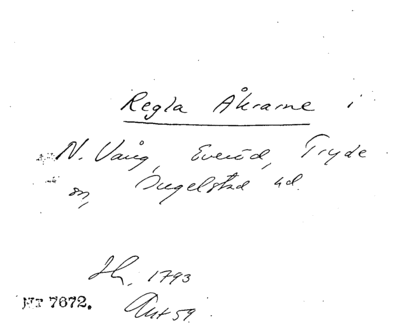 Regla Åkrarne i
N. Vång, Everöd, Tryde
sn, Ingelstad hd.
1793
NT 7672. Aut 59